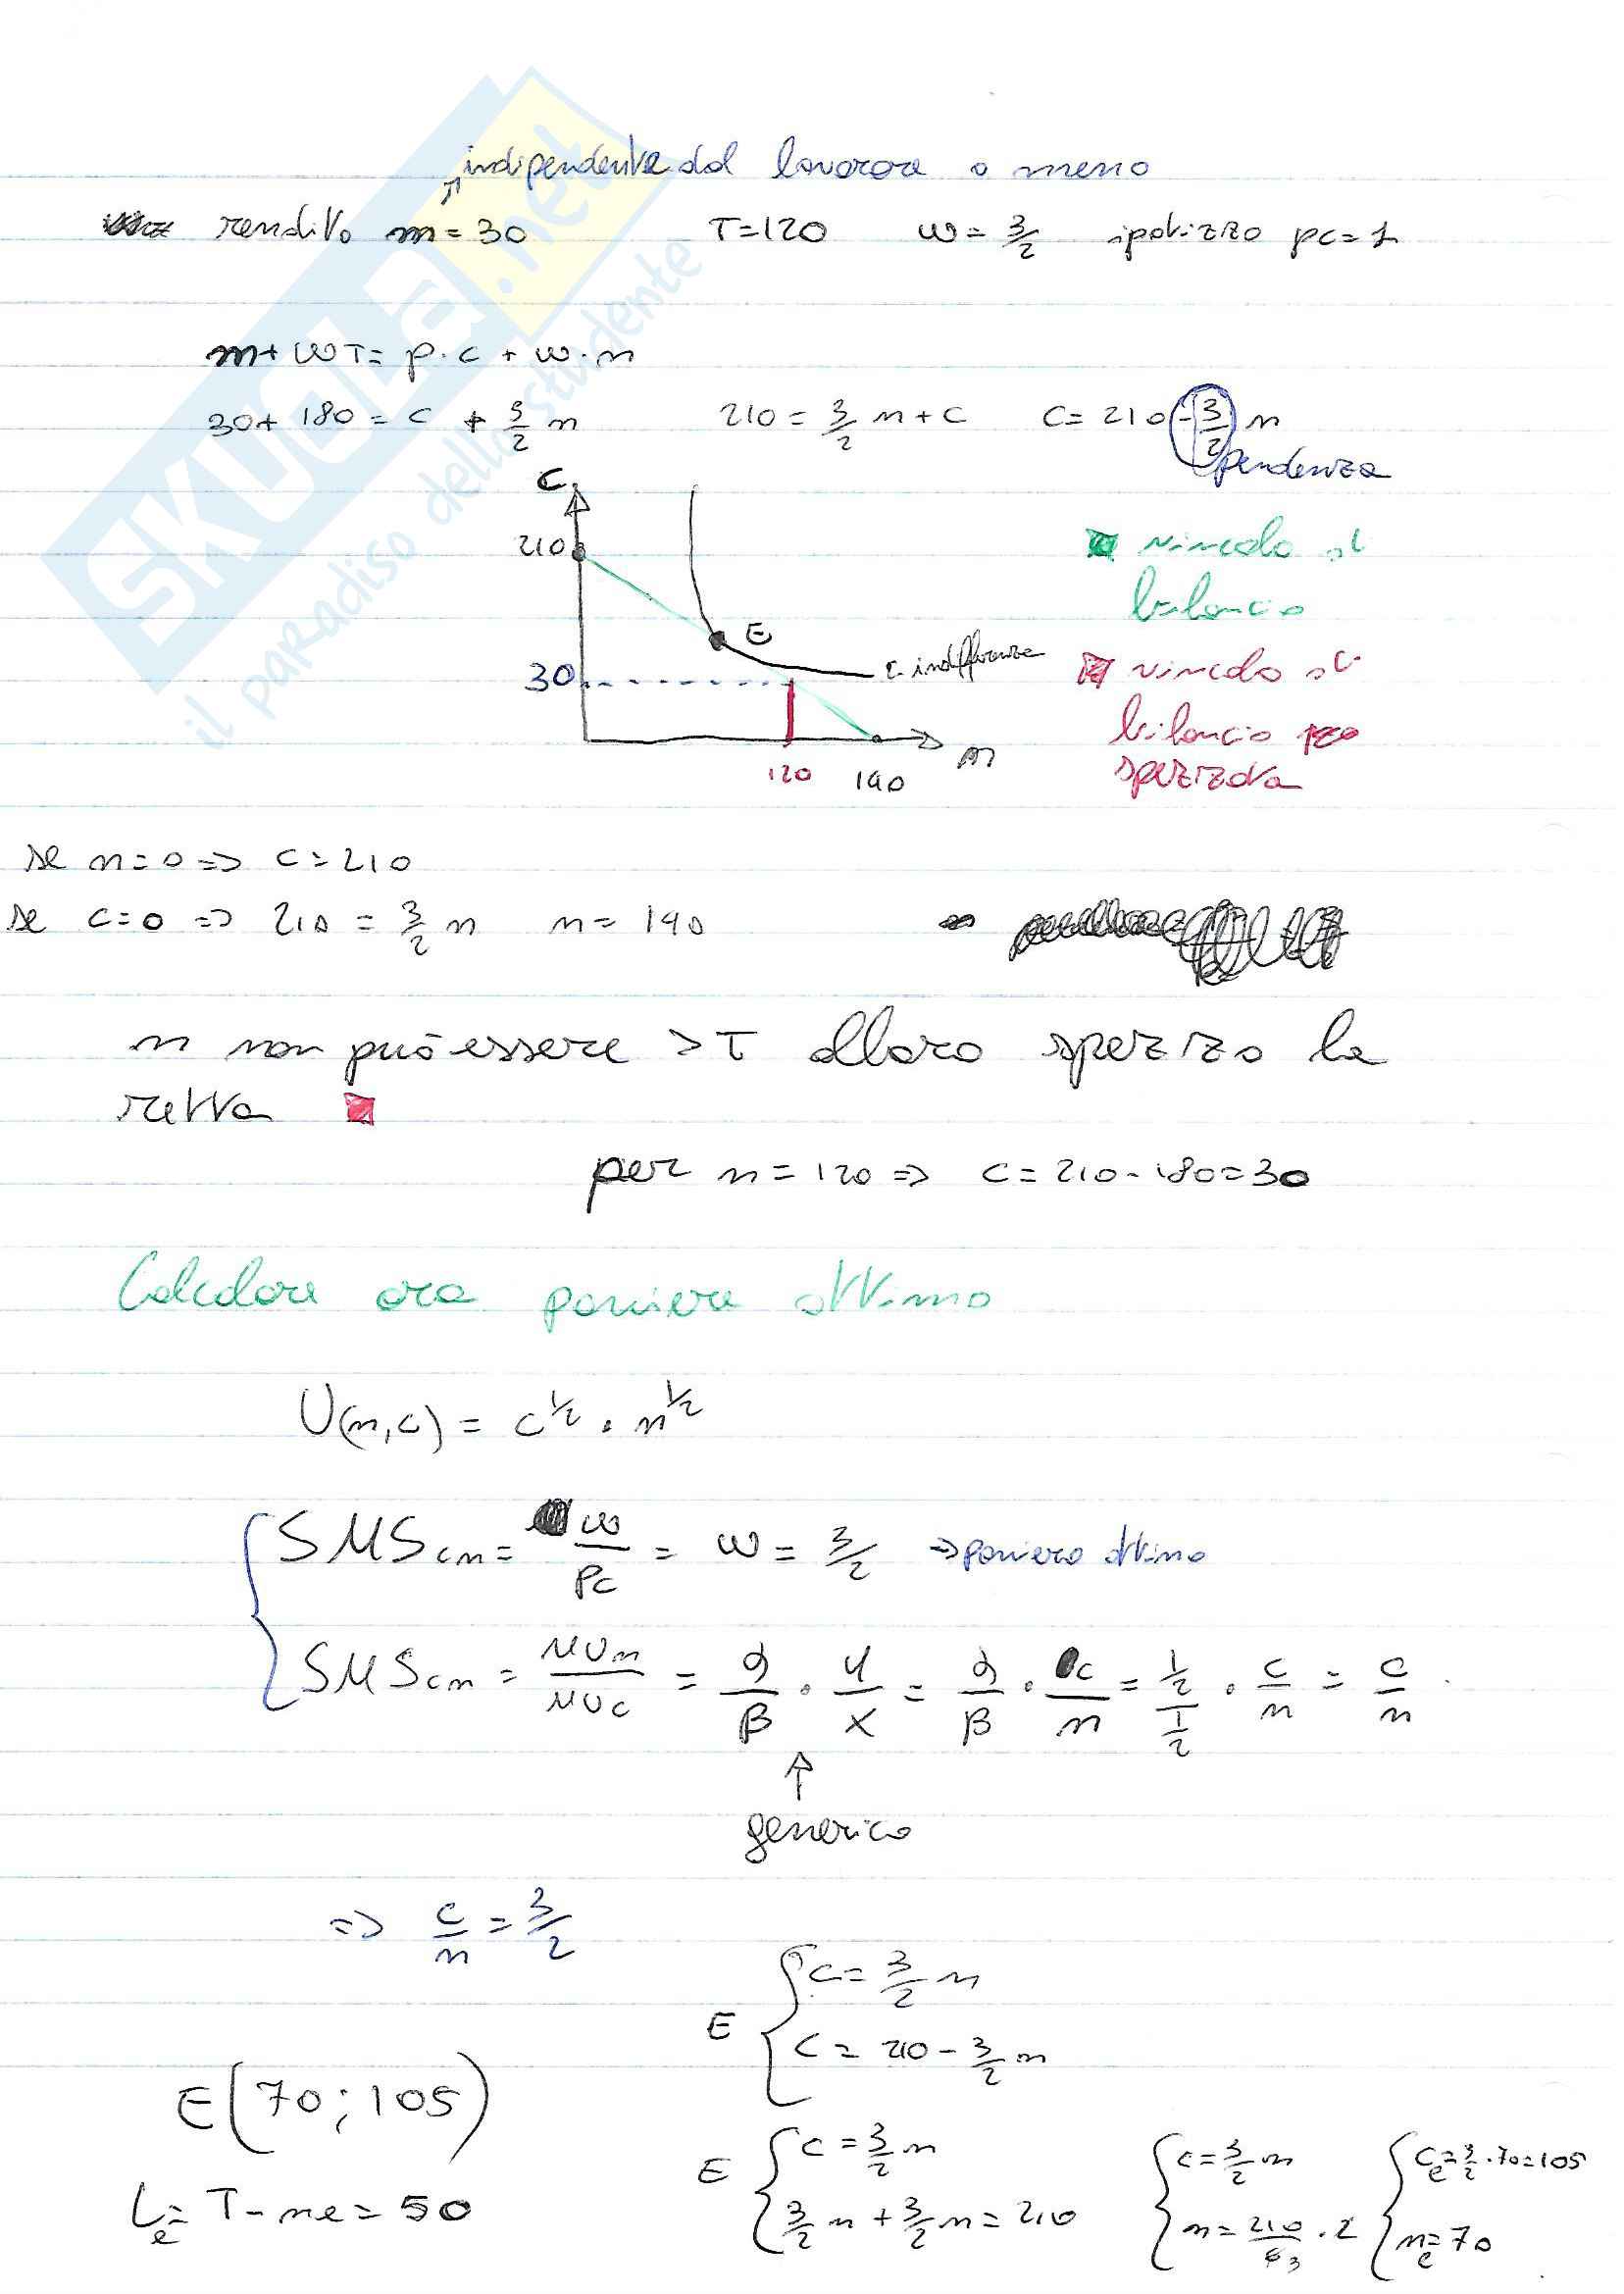 SKUOLA.net
il paradiso dello studente
indipendente dal lavorare o meno
rendita m = 30 T=120 w = 3/2 ipotizzo pc = 1
m + wT = p·c + w·n
30 + 180 = c + 3/2 n 210 = 3/2 n + c c = 210 - 3/2 n
pendenza
C
210
E
c. indifferenza
30
120
140
n
vincolo di
bilancio
vincolo di
bilancio
spezzata
se n = 0 => c = 210
se c = 0 => 210 = 3/2 n n = 140
n non può essere > T allora spezzo la
retta
per n = 120 => c = 210 - 180 = 30
Calcolare ora paniere ottimo
U(n,c) = c^1/2 · n^1/2
SMScn = w/pc = w = 3/2 => paniere ottimo
SMScn = MUn/MUc = α/β · y/x = α/β · c/n = 1/2 / 1/2 · c/n = c/n
generico
=> c/n = 3/2
E { c = 3/2 n
c = 210 - 3/2 n
E(70; 105)
Le = T - ne = 50
E { c = 3/2 n { c = 3/2 n { ce = 3/2 · 70 = 105
3/2 n + 3/2 n = 210 n = 210/6 3 · 2 ne = 70